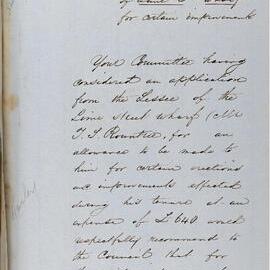 for certain improvements
Your Committee having
considered an application
from the Lessee of the
Lime street wharf (Mr
T. S. Rountree, for an
allowance to be made to
him for certain erections
and improvements effected
during his tenure at an
expense of £640 would
respectfully recommend to
the Council that for